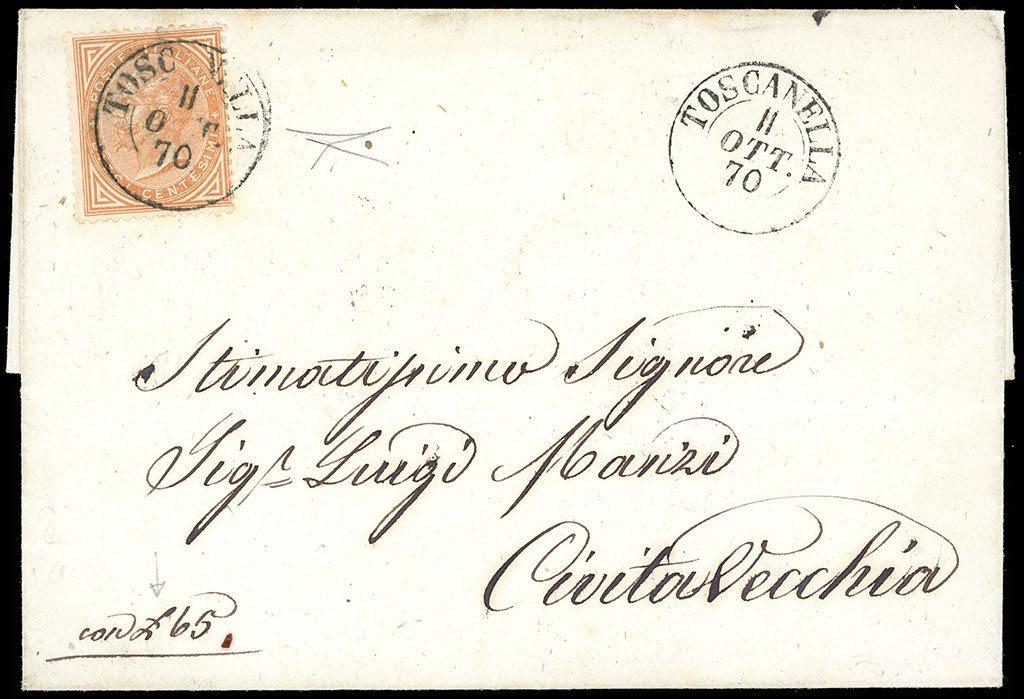 POSTE ITALIANE
CENTESIMI
TOSC ELLA
11
O T.
70
TOSCANELLA
11
OTT.
70
Stimatissimo Signore
Sigr Luigi Manzi
CivitaVecchia
con £ 65